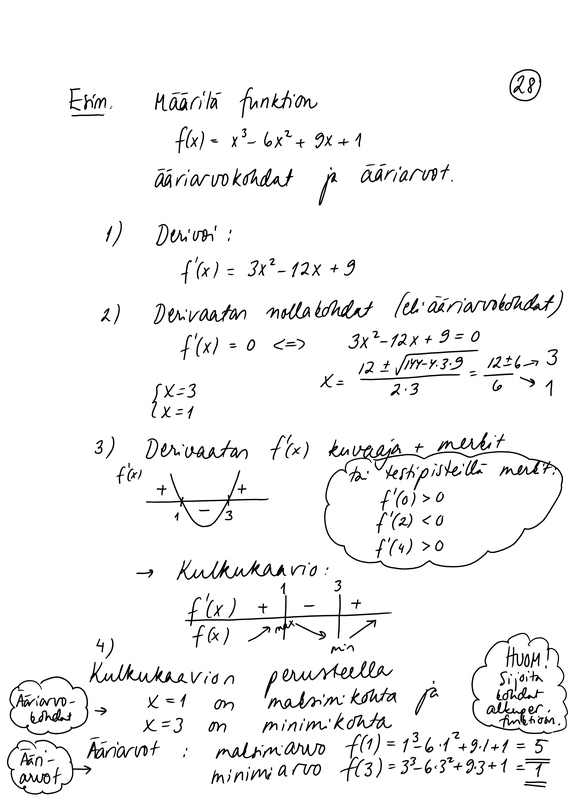 28
Esim. Määritä funktion
f(x) = x³ - 6x² + 9x + 1
ääriarvokohdat ja ääriarvot.
1) Derivoi :
f'(x) = 3x² - 12x + 9
2) Derivaatan nollakohdat (eli ääriarvokohdat)
f'(x) = 0 <=> 3x² - 12x + 9 = 0
x = (12 ± √(144-4·3·9))/(2·3) = (12±6)/6 → 3
→ 1
{ x=3
{ x=1
3) Derivaatan f'(x) kuvaaja + merkit
tai testipisteillä merkit:
f'(0) > 0
f'(2) < 0
f'(4) > 0
f'(x)
+ +
1 - 3
→ Kulkukaavio :
1 3
f'(x) + - +
f(x) max min
4)
Kulkukaavion perusteella
Ääriarvo-
kohdat →
x = 1 on maksimikohta ja
x = 3 on minimikohta
HUOM!
Sijoita
kohdat
alkuper.
funktioon.
Ääri-
arvot →
Ääriarvot : maksimiarvo f(1) = 1³-6·1²+9·1+1 = 5
minimiarvo f(3) = 3³-6·3²+9·3+1 = 1